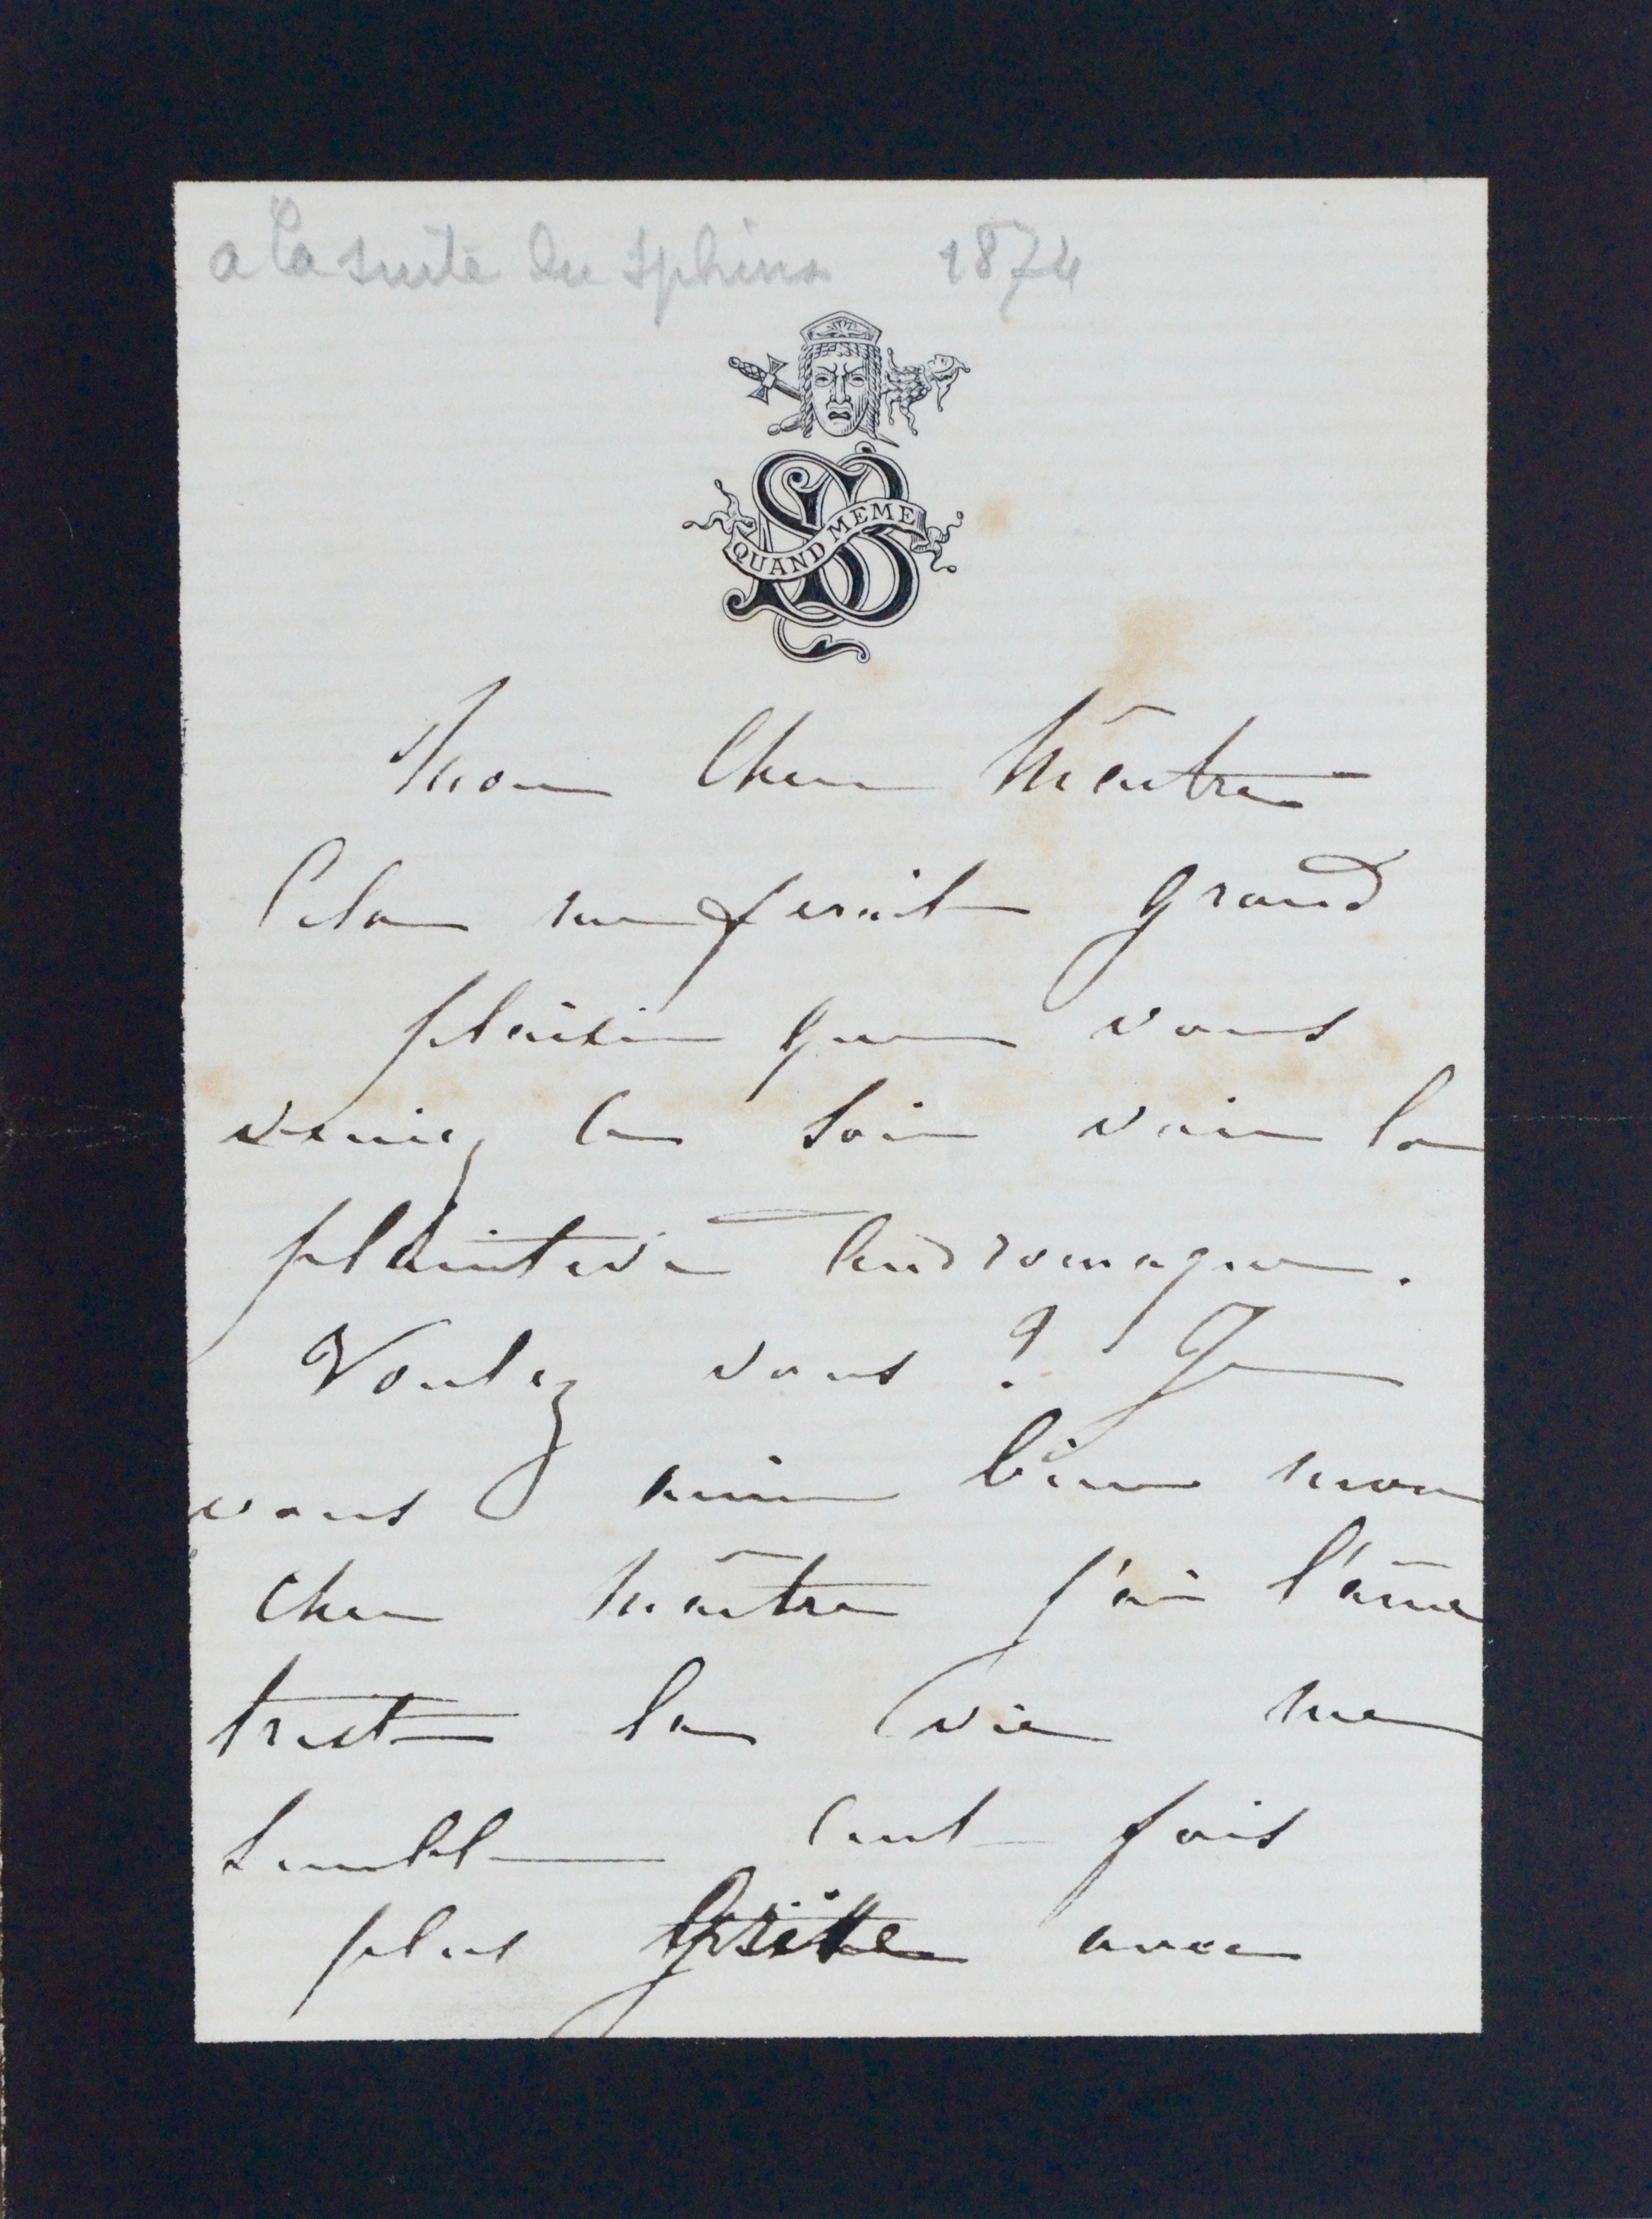 a la suite du Sphinx 1874
QUAND MEME
Mon Cher Maître
Cela me ferait grand
plaisir que vous
veniez ce soir voir la
plaintive Andromaque.
Voulez vous ? Je
vous aime bien mon
cher Maître j'ai l'âme
triste la vie me
semble cent fois
plus avec